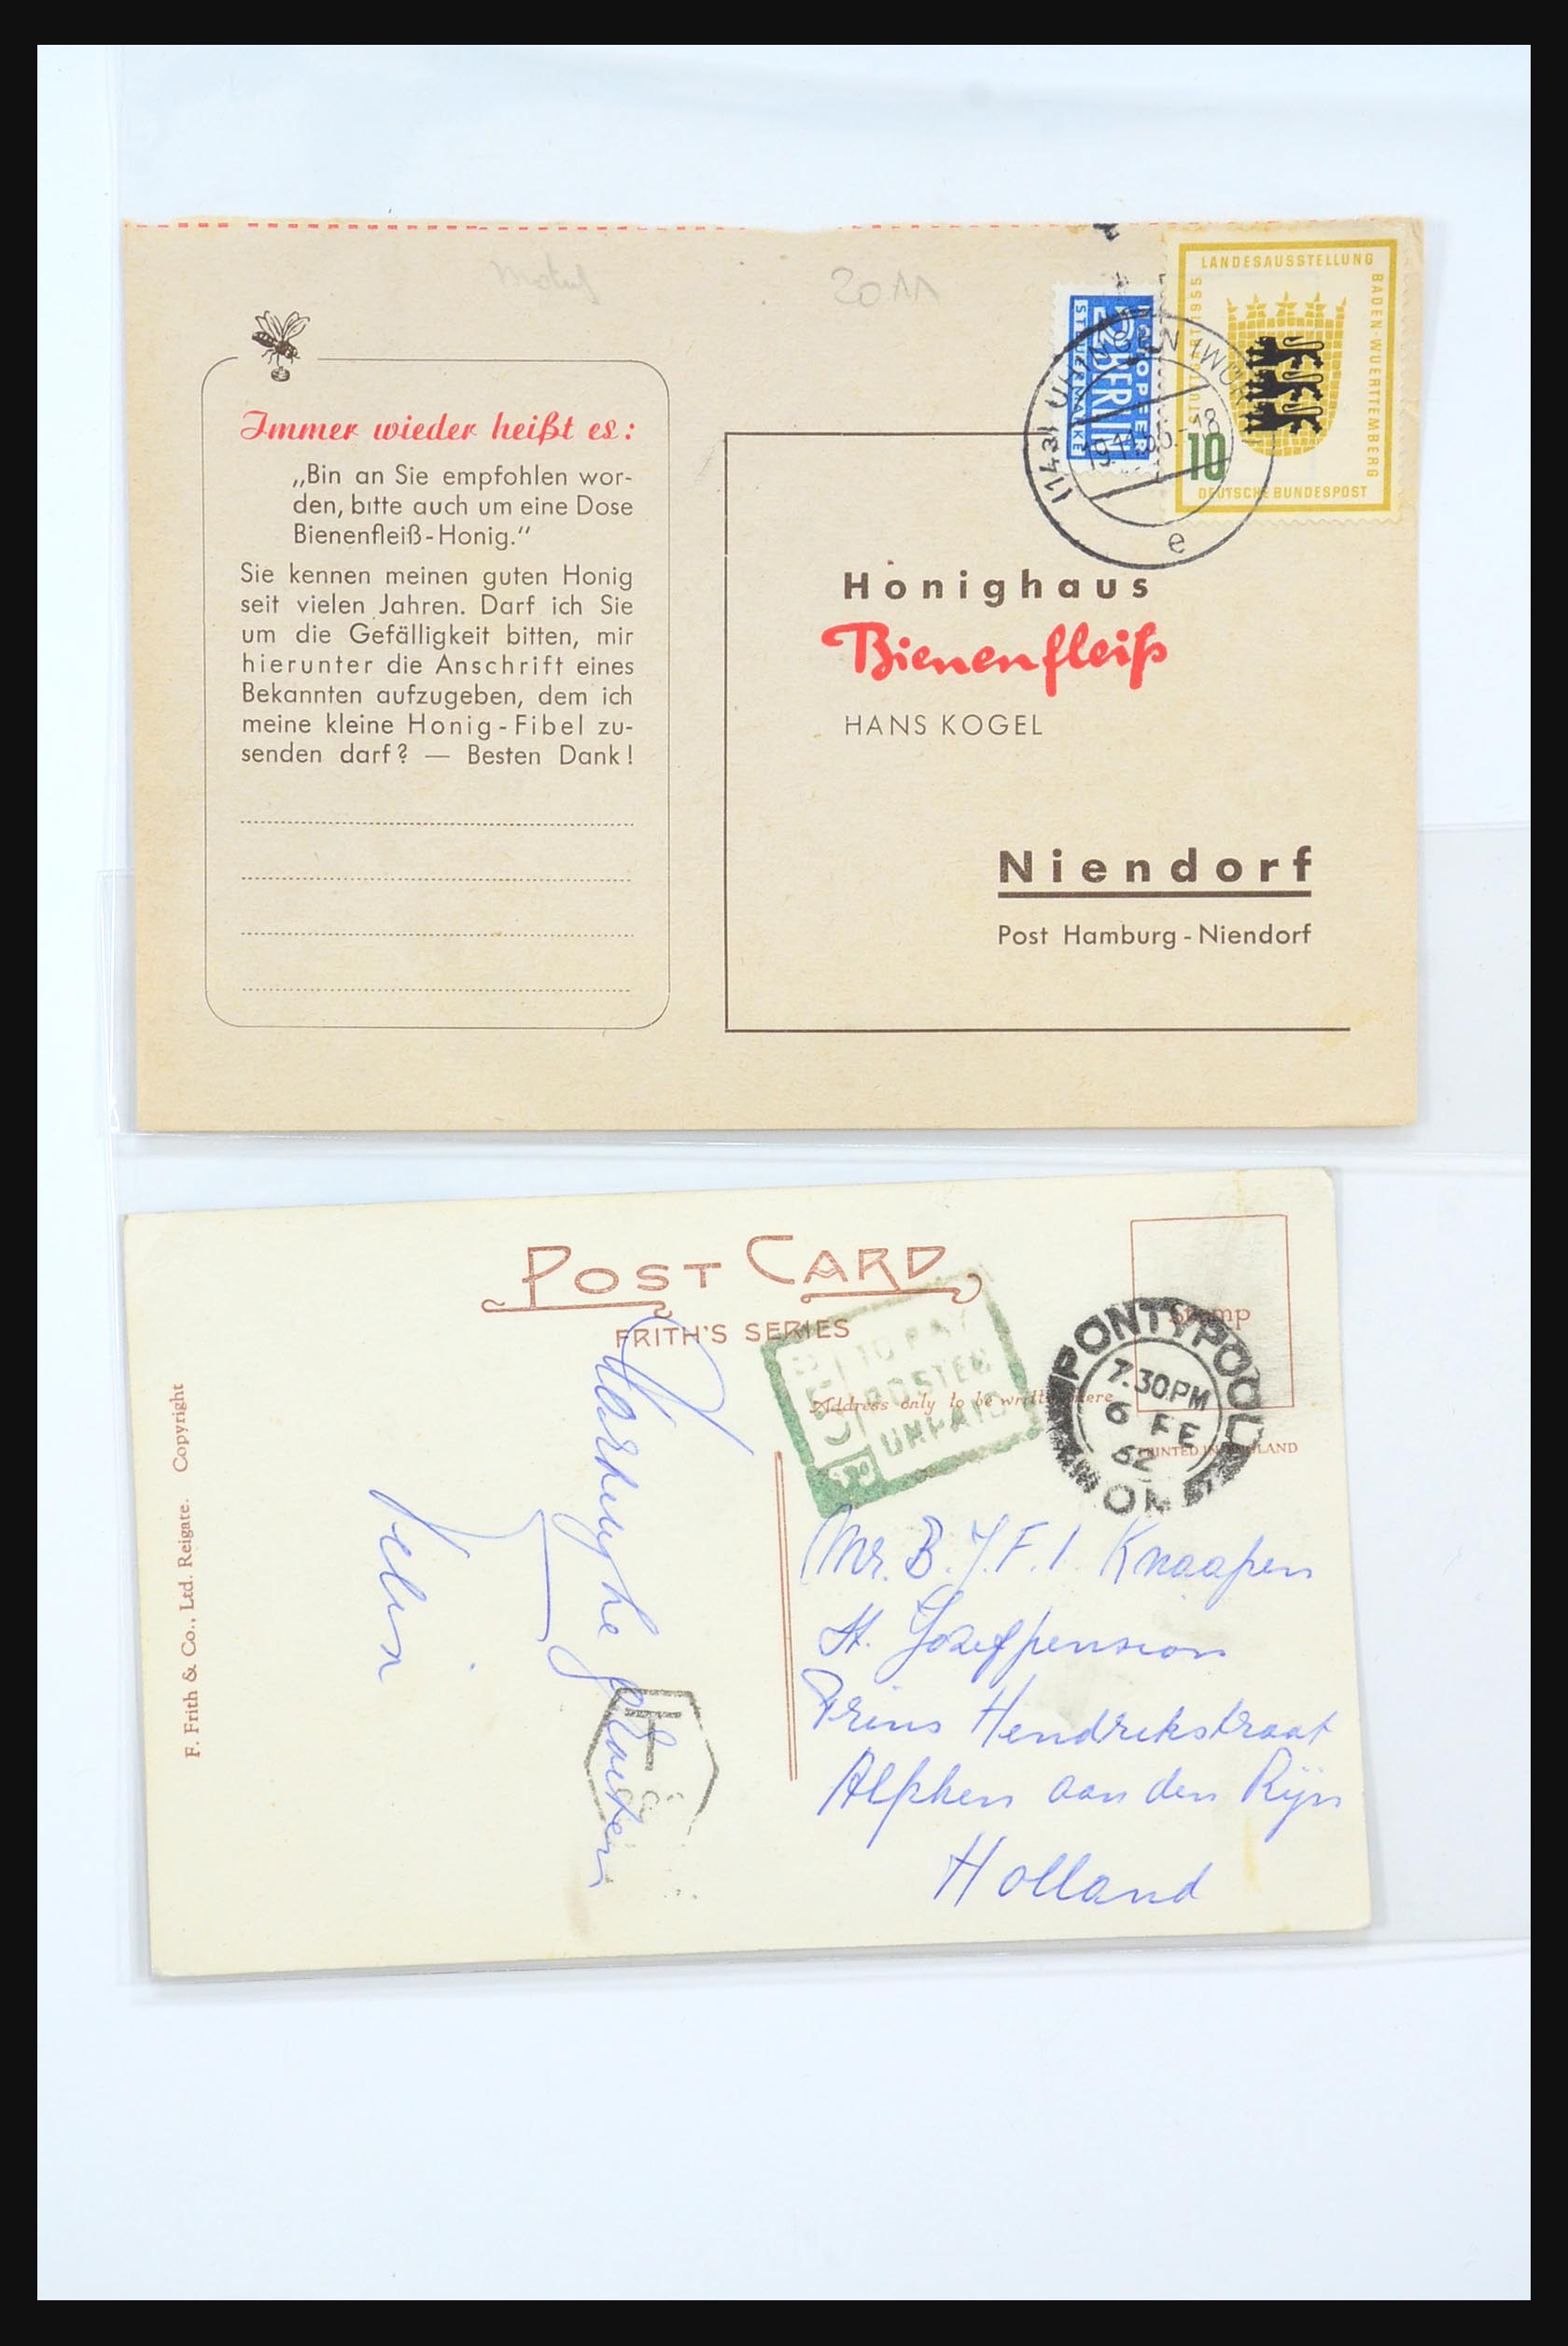 2011
LANDESAUSSTELLUNG
BADEN-WUERTTEMBERG
STUTTGART 1955
10
DEUTSCHE BUNDESPOST
NOTOPFER
2 BERLIN
STEUERMARKE
(14a) UHINGEN (WÜR
e
Immer wieder heißt es:
„Bin an Sie empfohlen wor-
den, bitte auch um eine Dose
Bienenfleiß-Honig.“
Sie kennen meinen guten Honig
seit vielen Jahren. Darf ich Sie
um die Gefälligkeit bitten, mir
hierunter die Anschrift eines
Bekannten aufzugeben, dem ich
meine kleine Honig-Fibel zu-
senden darf? — Besten Dank!
Honighaus
Bienenfleiß
HANS KOGEL
Niendorf
Post Hamburg-Niendorf
POST CARD
FRITH'S SERIES
Stamp
Address only to be written here
PRINTED IN ENGLAND
TO PAY
POSTED
UNPAID
PONTYPOOL
7.30PM
6 FE
62
MON
F. Frith & Co., Ltd. Reigate. Copyright
T
Mr. B. J. F. I. Knaapen
St. Jozefpension
Prins Hendrikstraat
Alphen aan den Rijn
Holland